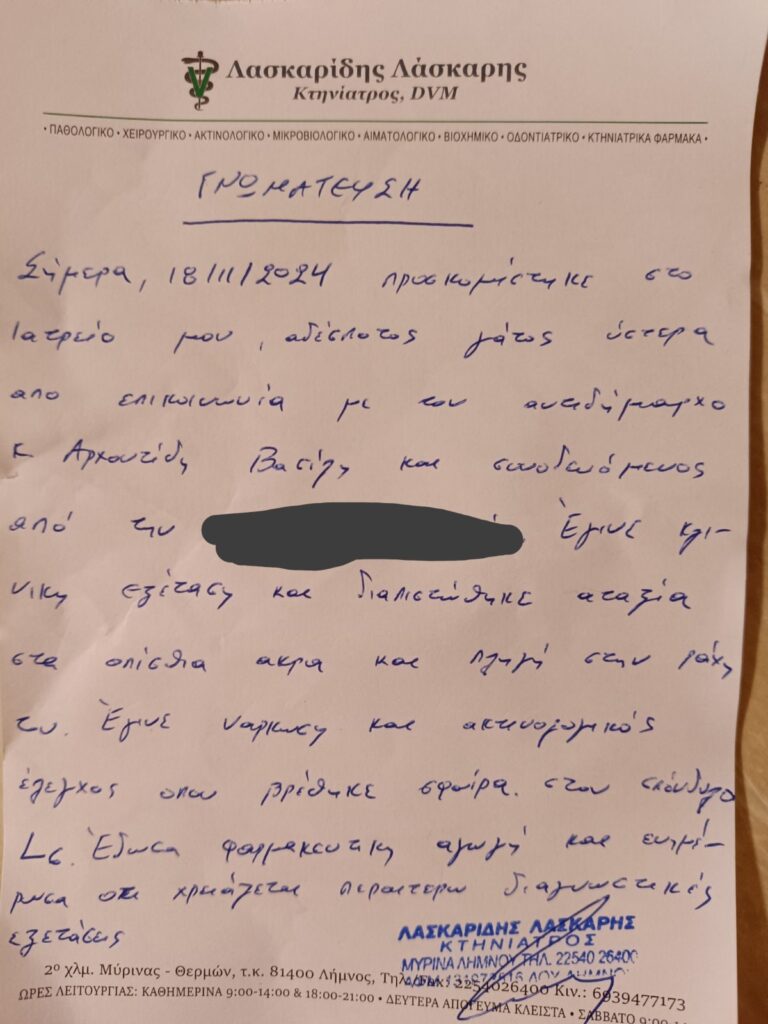 Λασκαρίδης Λάσκαρης
Κτηνίατρος, DVM
• ΠΑΘΟΛΟΓΙΚΟ • ΧΕΙΡΟΥΡΓΙΚΟ • ΑΚΤΙΝΟΛΟΓΙΚΟ • ΜΙΚΡΟΒΙΟΛΟΓΙΚΟ • ΑΙΜΑΤΟΛΟΓΙΚΟ • ΒΙΟΧΗΜΙΚΟ • ΟΔΟΝΤΙΑΤΡΙΚΟ • ΚΤΗΝΙΑΤΡΙΚΑ ΦΑΡΜΑΚΑ •
ΓΝΩΜΑΤΕΥΣΗ
Σήμερα, 18/11/2024 προσκομίστηκε στο
Ιατρείο μου, αδέσποτος γάτος ύστερα
απο επικοινωνία με τον αντιδήμαρχο
κ Αρχοντίδη Βασίλη και συνοδευόμενος
από την Έγινε κλι-
νικη εξέταση και διαπιστώθηκε αταξία
στα οπίσθια ακρα και πληγή στην ράχη
του. Έγινε ναρκωση και ακτινολογικός
έλεγχος οπου βρέθηκε σφαίρα στον σπόνδυλο
Έδωσα φαρμακευτικη αγωγή και ενημέ-
ρωσα οτι χρειάζεται περαιτερω διαγνωστικές
εξετάσεις
ΛΑΣΚΑΡΙΔΗΣ ΛΑΣΚΑΡΗΣ
ΚΤΗΝΙΑΤΡΟΣ
ΜΥΡΙΝΑ ΛΗΜΝΟΥ ΤΗΛ. 22540 26400
2ο χλμ. Μύρινας - Θερμών, τ.κ. 81400 Λήμνος, Τηλ./Fax: 2254026400 Κιν.: 6939477173
ΩΡΕΣ ΛΕΙΤΟΥΡΓΙΑΣ: ΚΑΘΗΜΕΡΙΝΑ 9:00-14:00 & 18:00-21:00 • ΔΕΥΤΕΡΑ ΑΠΟΓΕΥΜΑ ΚΛΕΙΣΤΑ • ΣΑΒΒΑΤΟ 9:00-